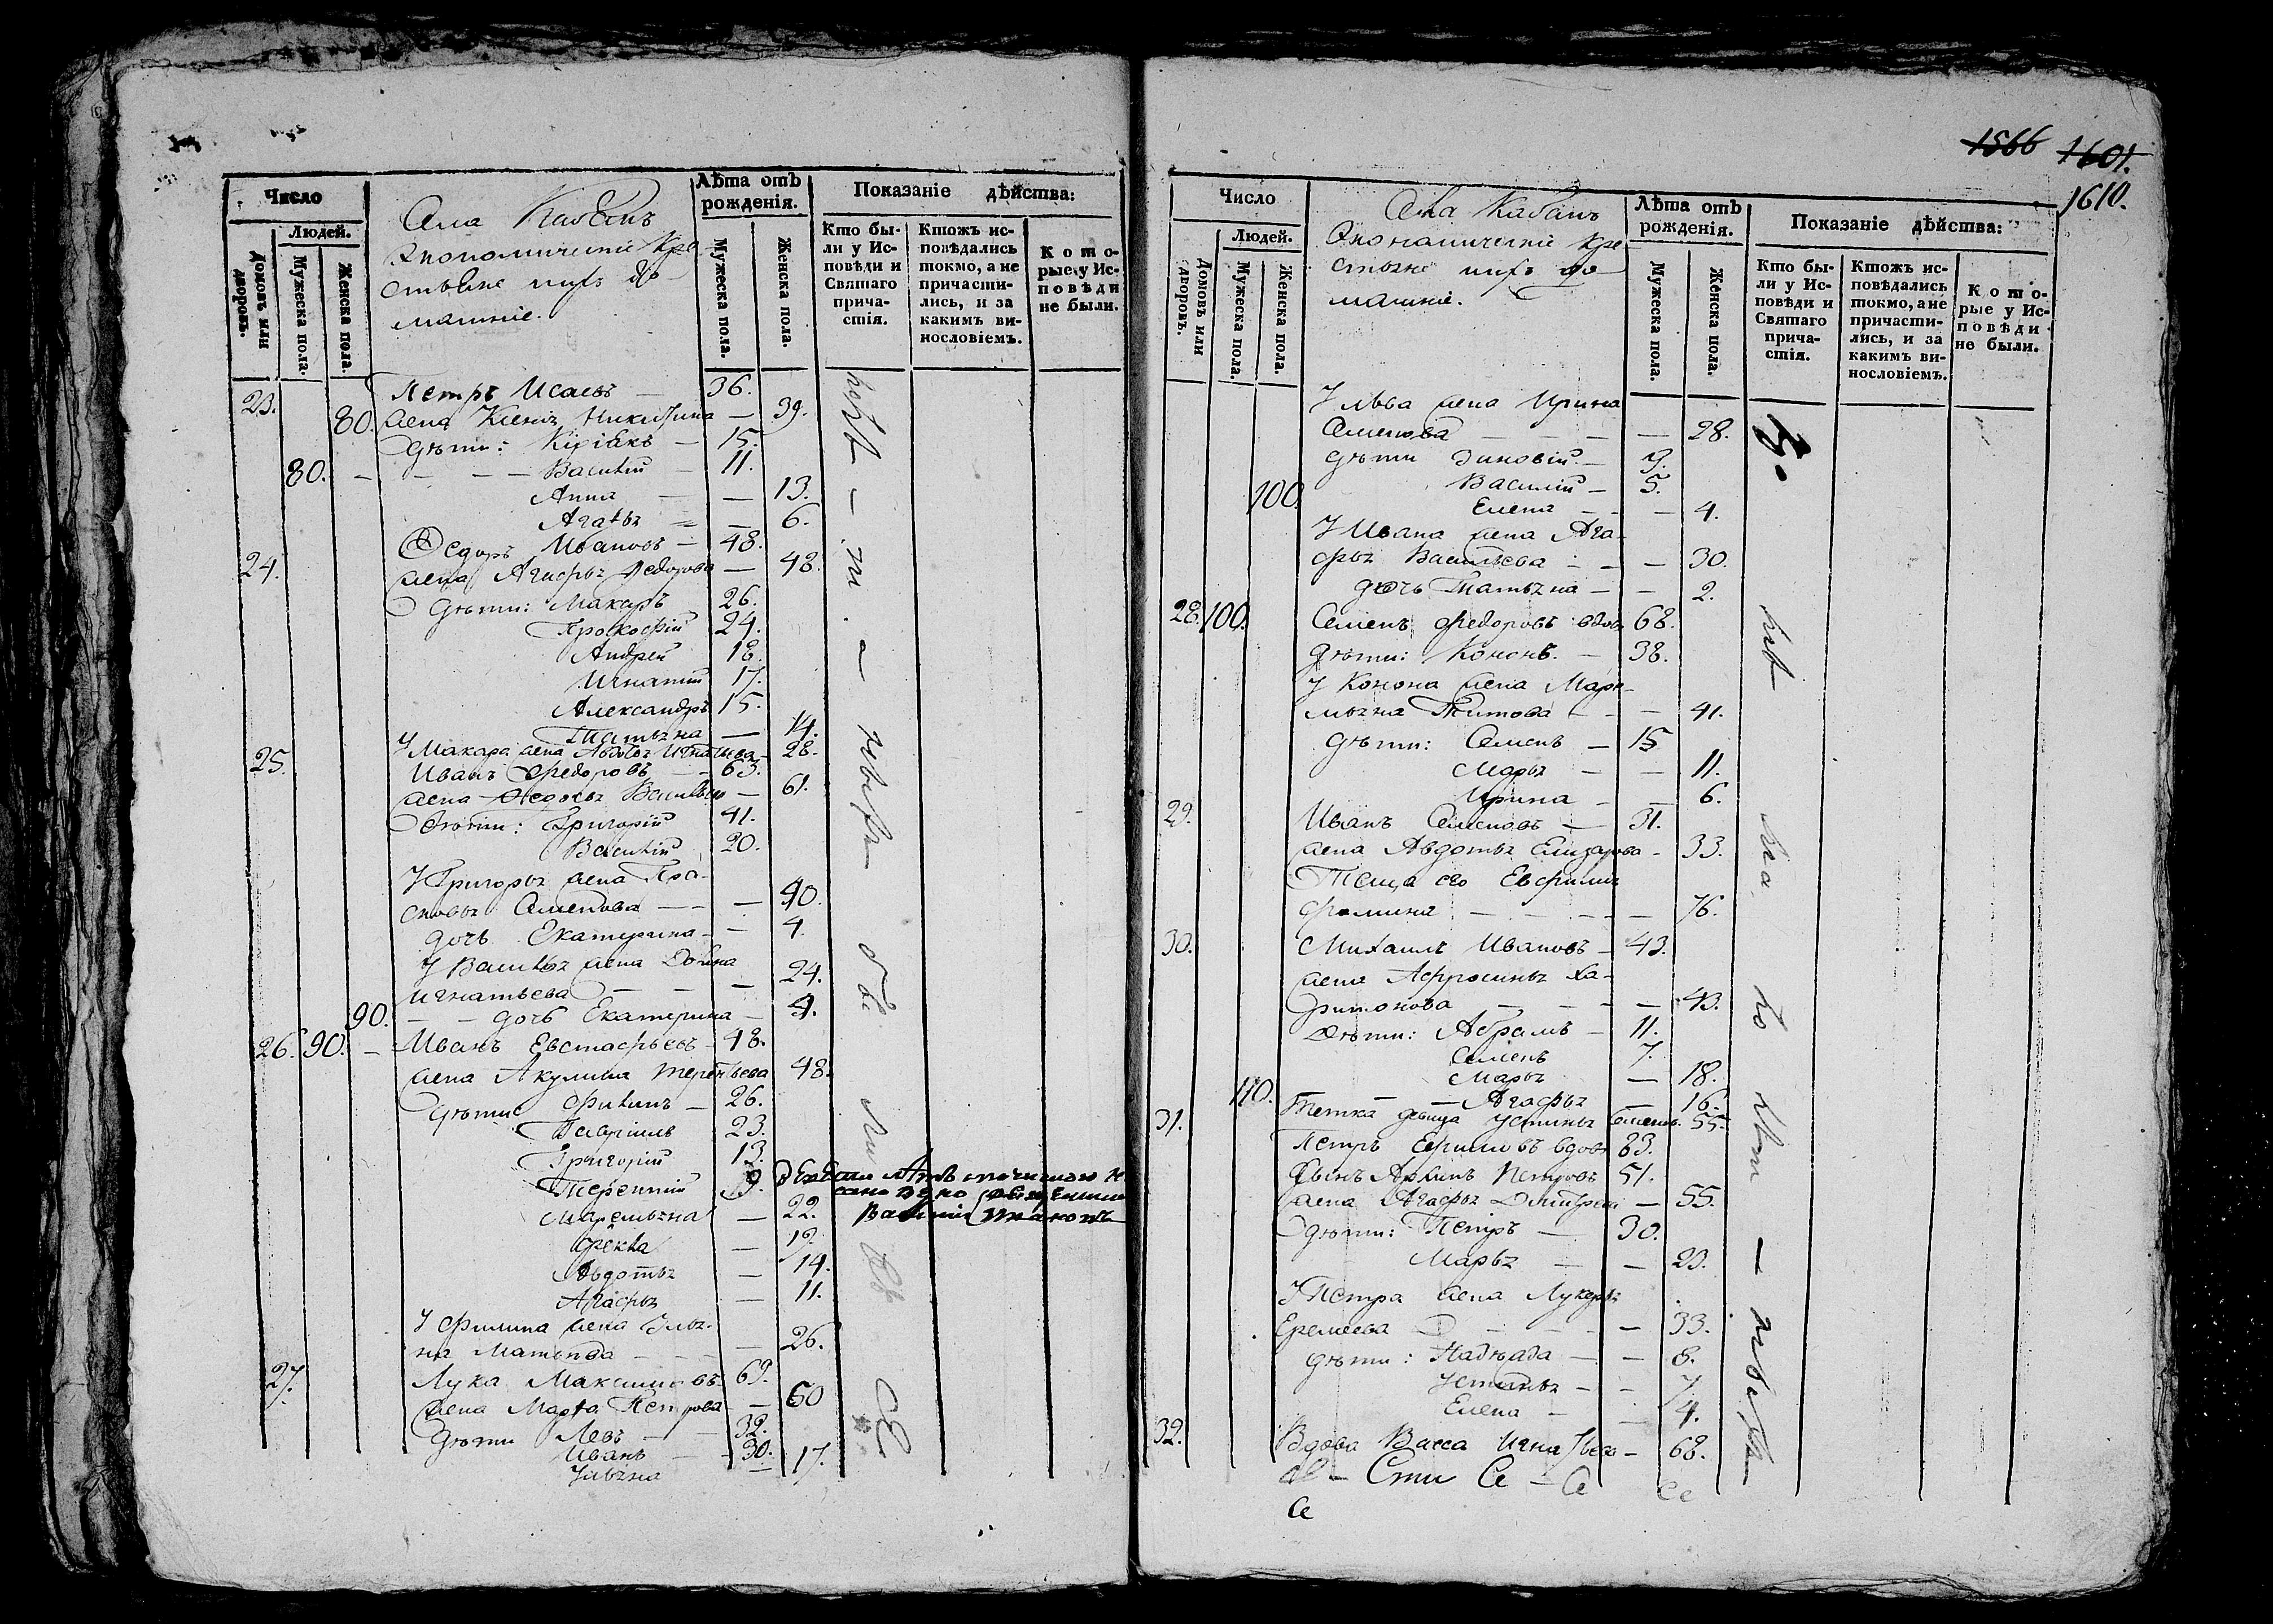 Число
Людей.
Домовъ или дворовъ.
Мужеска пола.
Женска пола.
Села Кабанъ
Экономическіе кре-
стьяне ихъ до-
машніе.
Лѣта отъ рожденія.
Мужеска пола.
Женска пола.
Показаніе дѣйства:
Кто бы-
ли у Ис-
повѣди и
Святаго
прича-
стія.
Ктожъ ис-
повѣдались
токмо, а не
причасти-
лись, и за
какимъ ви-
нословіемъ.
Кото-
рые у Ис-
повѣди
не были.
23. Петръ Исаевъ — 36.
80. жена Ксенія Никитина — 39.
дѣти: Киріакъ — 15.
80. — — — Василій — 11.
Анна — — 13.
Агафья — 6.
24. Федоръ Ивановъ — 48.
жена Агафья Федорова — 48.
дѣти: Макаръ 26.
Прокофій 24.
Андрей 18.
Игнатій 17.
Александръ 15.
Татьяна — 14.
У Макара жена Авдотья Игнатьева — 28.
25. Иванъ Федоровъ — 63.
жена Федосья Васильева — 61.
дѣти: Григорій 41.
Василій 20.
У Григорья жена Пра-
сковья Семенова — — — 40.
дочь Екатерина — — 4.
У Василья жена Домна
Игнатьева — — — 24.
90. — — дочь Екатерина — 4.
26. 90. — Иванъ Евстафьевъ — 48.
жена Акулина Терентьева 48.
дѣти Филипъ — 26.
Гавріилъ 23.
Григорій 13.
Терентій 9.
Маремьяна — 22.
Фекла — 19.
Авдотья — 14.
Агафья — 11.
У Филипа жена Улья-
на Матвѣева — — — 26.
27. Лука Максимовъ — 69.
жена Марфа Петрова — — 60
дѣти Левъ — — 32.
Иванъ — — 30.
Ульяна — 17.
1566 1601.
1610.
Число
Людей.
Домовъ или дворовъ.
Мужеска пола.
Женска пола.
Села Кабанъ
Экономическіе кре-
стьяне ихъ до-
машніе.
Лѣта отъ рожденія.
Мужеска пола.
Женска пола.
Показаніе дѣйства:
Кто бы-
ли у Ис-
повѣди и
Святаго
прича-
стія.
Ктожъ ис-
повѣдались
токмо, а не
причасти-
лись, и за
какимъ ви-
нословіемъ.
Кото-
рые у Ис-
повѣди
не были.
У Льва жена Ирина
Семенова — — — — 28.
дѣти Зиновій — 9.
Василій — 5.
100. Елена — — — 4.
У Ивана жена Ага-
фья Васильева — — — 30.
дочь Татьяна — — 2.
28. 100. Семенъ Федоровъ вдовъ 68.
дѣти: Кононъ. — 38.
У Конона жена Маре-
мьяна Титова — — — 41.
дѣти: Семенъ — 15
Марья — — 11.
Ирина — — 6.
29. Иванъ Семеновъ — 31.
жена Авдотья Елизарова — 33.
Теща его Евфимія
Фомина — — — — 76.
30. Михаилъ Ивановъ — 43.
жена Афросинья Ха-
ритонова — — — — 43.
Дѣти: Абрамъ — 11.
Семенъ 7.
Марья — 18.
110. — — Агафья — 16.
Тетка девица Устинья Семенов. 55.
31. Петръ Ефимовъ вдовъ 83.
Сынъ Архипъ Петровъ 51.
жена Агафья Дмитрева — 55.
дѣти: Петръ — 30.
Марья — — 23.
У Петра жена Лукерья
Еремеева — — — — 33.
дѣти: Надежда — — 8.
Устинья — — 7.
Елена — — 4.
32. Вдова Васса Игнатьева — 68.